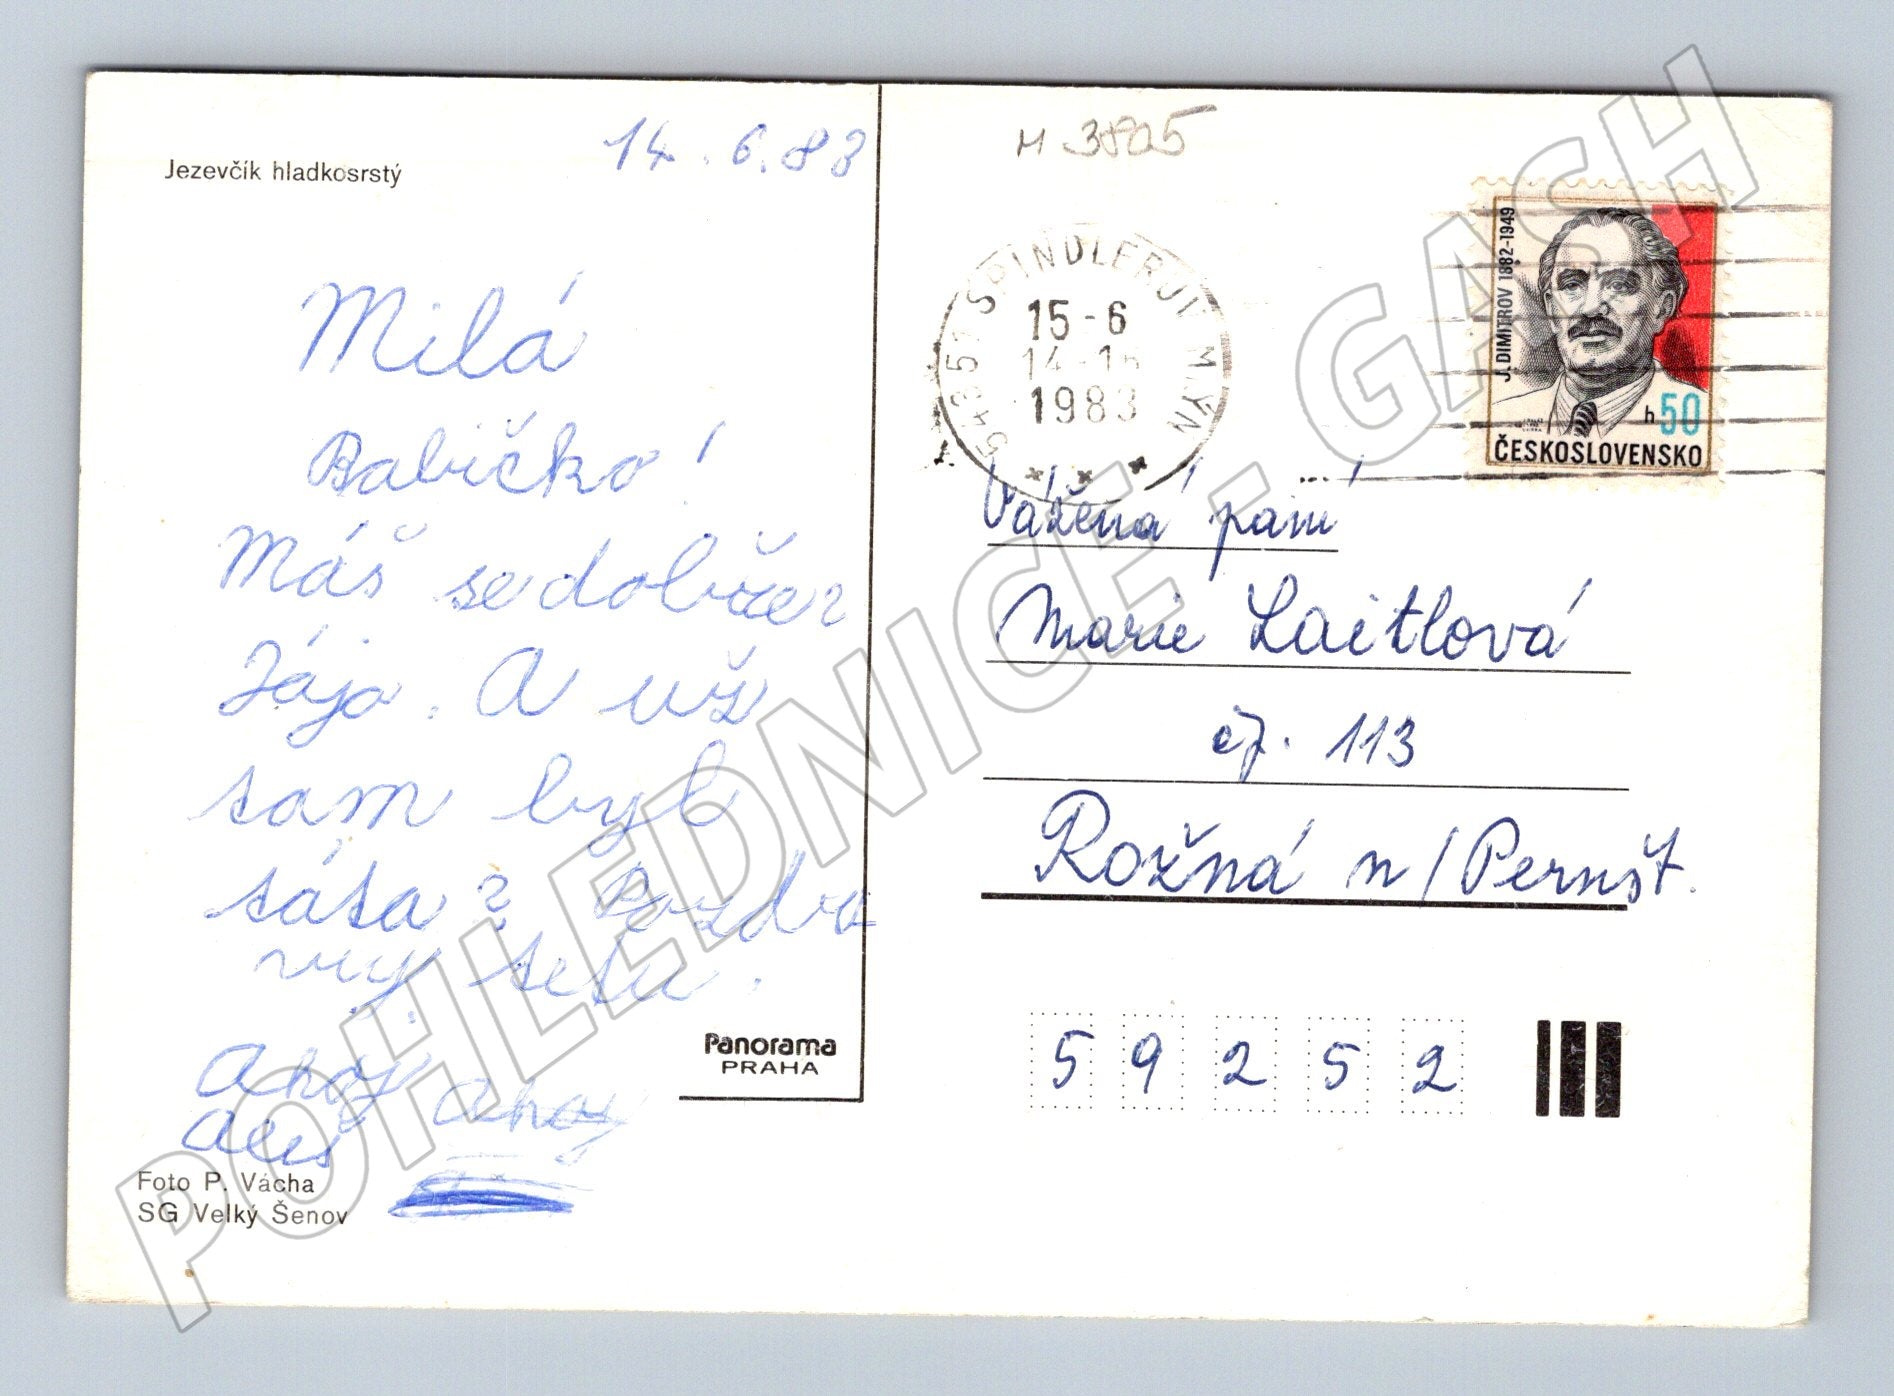 Jezevčík hladkosrstý
14. 6. 83
Milá
Babičko!
Máš se dobře?
Jájo. A už
tam byl
táta? Pozdra
vuj tetu.
Ahoj Ahoj
Aleš
Foto P. Vácha
SG Velký Šenov
Panorama
PRAHA
M 3825
54351 ŠPINDLERŮV MLÝN
15-6
14-15
1983
J. DIMITROV 1882-1949
h 50
ČESKOSLOVENSKO
Vážená paní
Marie Laitlová
čj. 113
Rožná n/Pernšt.
5 9 2 5 2
POHLEDNICE - GASH